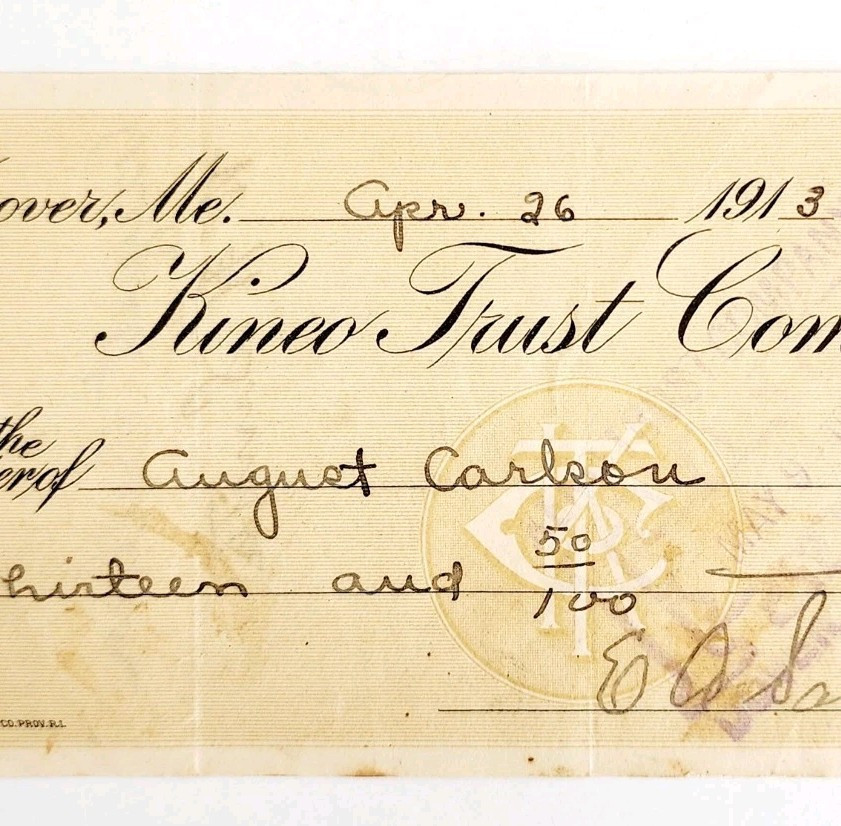 over, Me. Apr. 26 1913
Kineo Trust Com
the
er of August Carlson
hirteen and 50/100
E
CO. PROV. R.I.
MAY 9